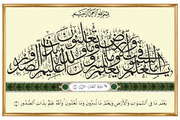 بسم الله الرحمن الرحيم
يعلم ما في السموات والأرض ويعلم ما تسرون وما تعلنون والله عليم بذات الصدور
يعلم ما في السموات والأرض ويعلم ما تسرون وما تعلنون والله عليم بذات الصدور